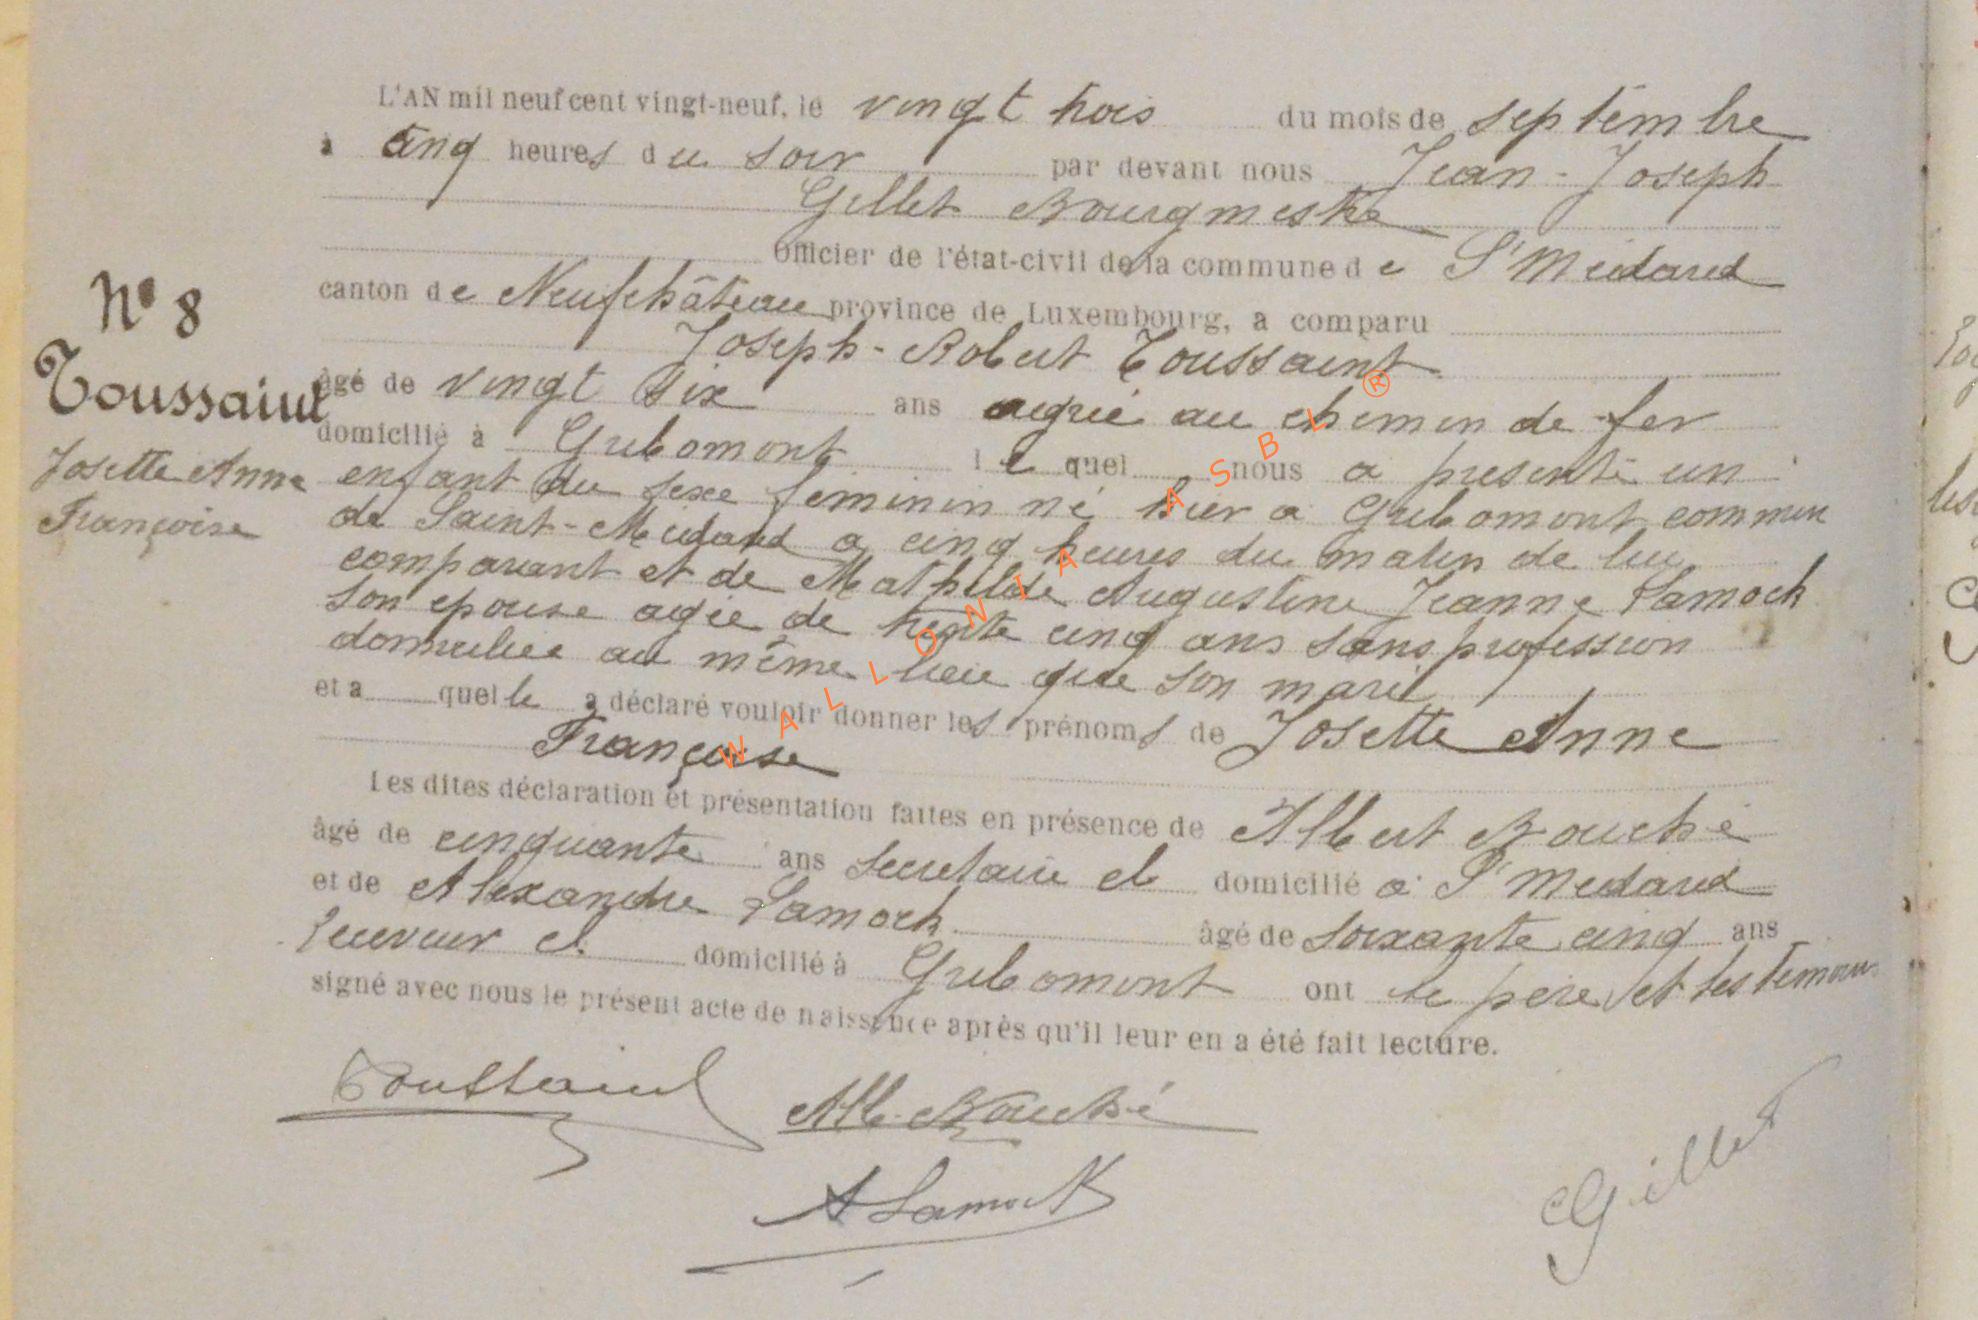 L'AN mil neuf cent vingt-neuf, le vingt trois du mois de septembre
à cinq heures du soir par devant nous Jean-Joseph
Gillet Bourgmestre
Officier de l'état-civil de la commune de St Médard
canton de Neufchâteau province de Luxembourg, a comparu
Joseph-Robert Toussaint
N° 8
Toussaint
Josette Anne
Françoise
âgé de vingt six ans agréé au chemin de fer
domicilié à Gribomont lequel nous a présenté un
enfant du sexe féminin né hier a Gribomont commune
de Saint-Médard a cinq heures du matin de lui
comparant et de Mathilde Augustine Jeanne Lamock
son épouse agée de trente cinq ans sans profession
domiciliée au même lieu que son mari
et a quelle a déclaré vouloir donner les prénoms de Josette Anne
Françoise
Les dites déclaration et présentation faites en présence de Albert Bouché
âgé de cinquante ans secretaire cl domicilié a St Médard
et de Alexandre Lamock âgé de soixante cinq ans
Receveur cl domicilié à Gribomont ont le père et les témoins
signé avec nous le présent acte de naissance après qu'il leur en a été fait lecture.
Toussaint
Alb. Bouché
A Lamock
Gillet
WALLONIA ASBL ®